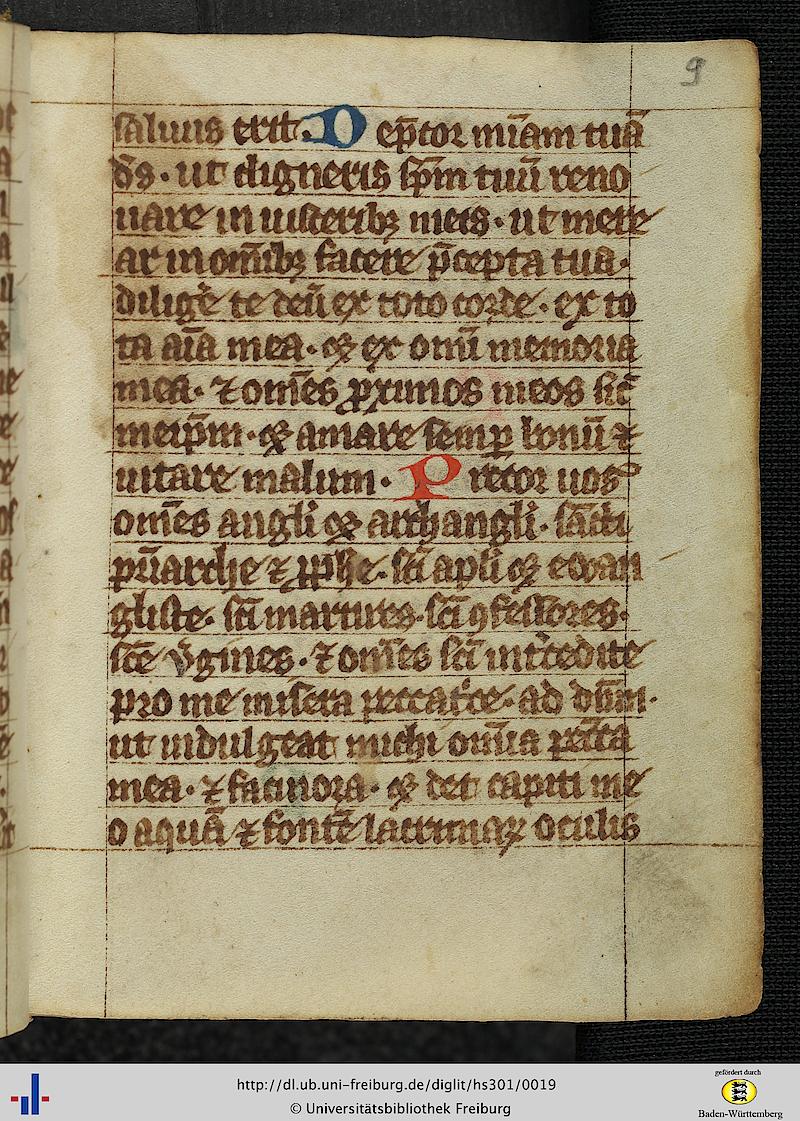 9
saluus erit. D ep̄cor mīam tuā
d̄s · ut digneris sp̄m tuū reno
uare in uisceribꝫ meis · ut mere
ar in om̄ibꝫ facere p̄cepta tua ·
diliḡe te deū ex toto corde · ex to
ta aīa mea · ꝫ ex omī memoria
mea · ⁊ om̄es ꝓximos meos sic̄
meip̄m · ꝫ amare semꝑ bonū ⁊
uitare malum · P recor uos
om̄es angl̄i ꝫ archangl̄i · sācti
pat̄arche ⁊ ꝓph̄e · sc̄i apl̄i ꝫ ewan
gliste · sc̄i martires · sc̄i ꝯfessores ·
sc̄e v̄gines · ⁊ om̄es sc̄i int̄cedite
pro me misera peccat̄ce · ad dn̄m ·
ut indulgeat michi om̄ia pc̄cata
mea · ⁊ facinora · ꝫ det capiti me
o aquā ⁊ fontē lacrimaꝝ oculis
http://dl.ub.uni-freiburg.de/diglit/hs301/0019
© Universitätsbibliothek Freiburg
gefördert durch
Baden-Württemberg